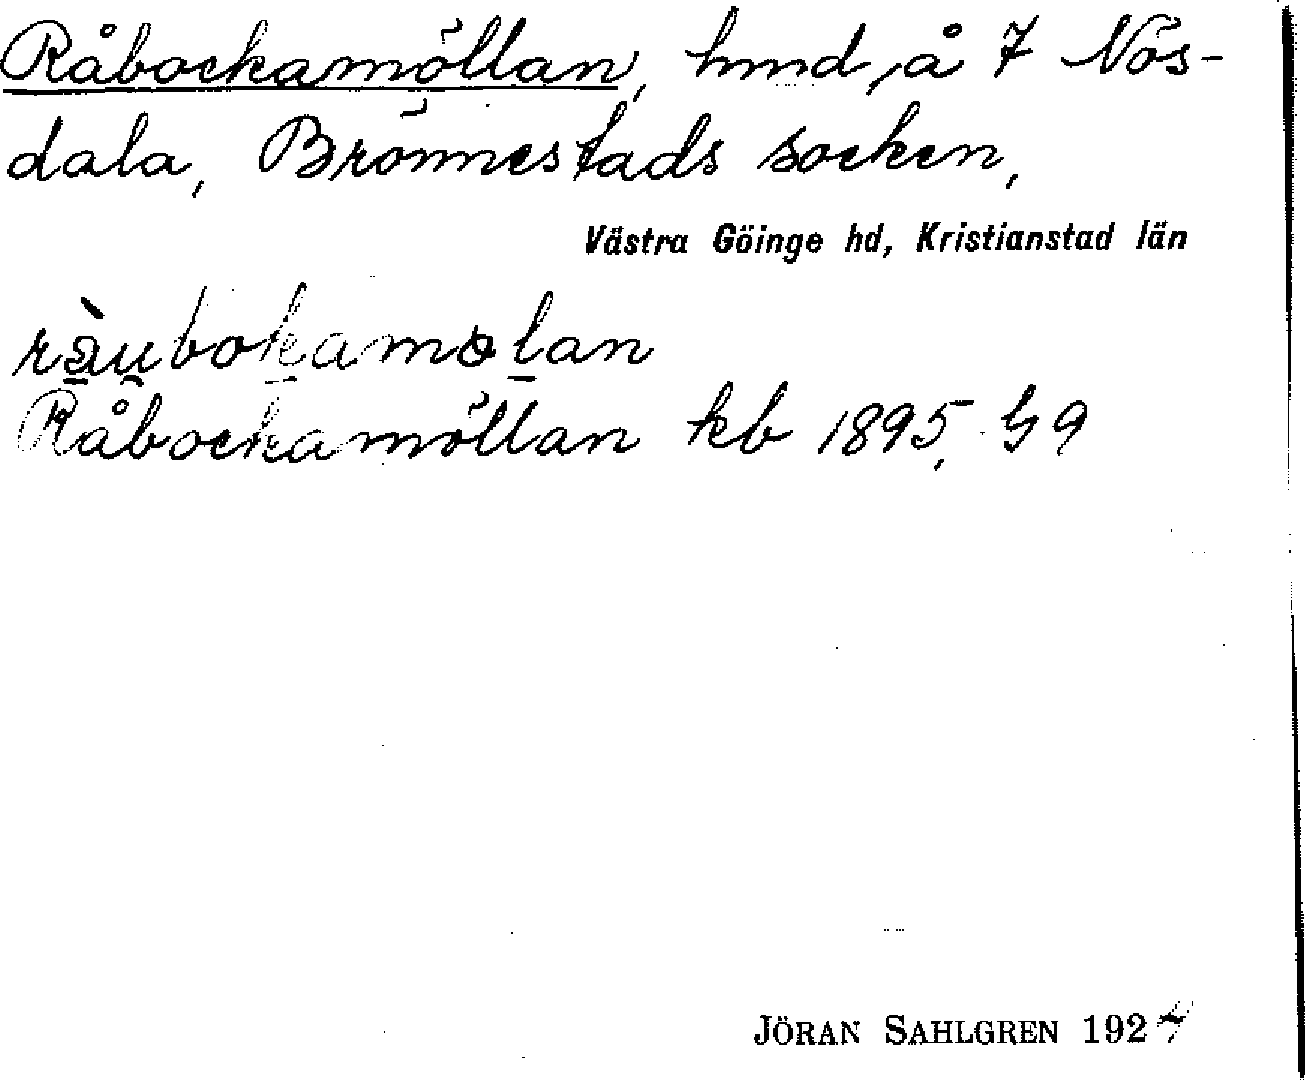 Råbockamöllan, hmd, å 7 Nös-
dala, Brönnestads socken,
Västra Göinge hd, Kristianstad län
ràubokamolan
Råbockamöllan kb 1895, G9
JÖRAN SAHLGREN 1924